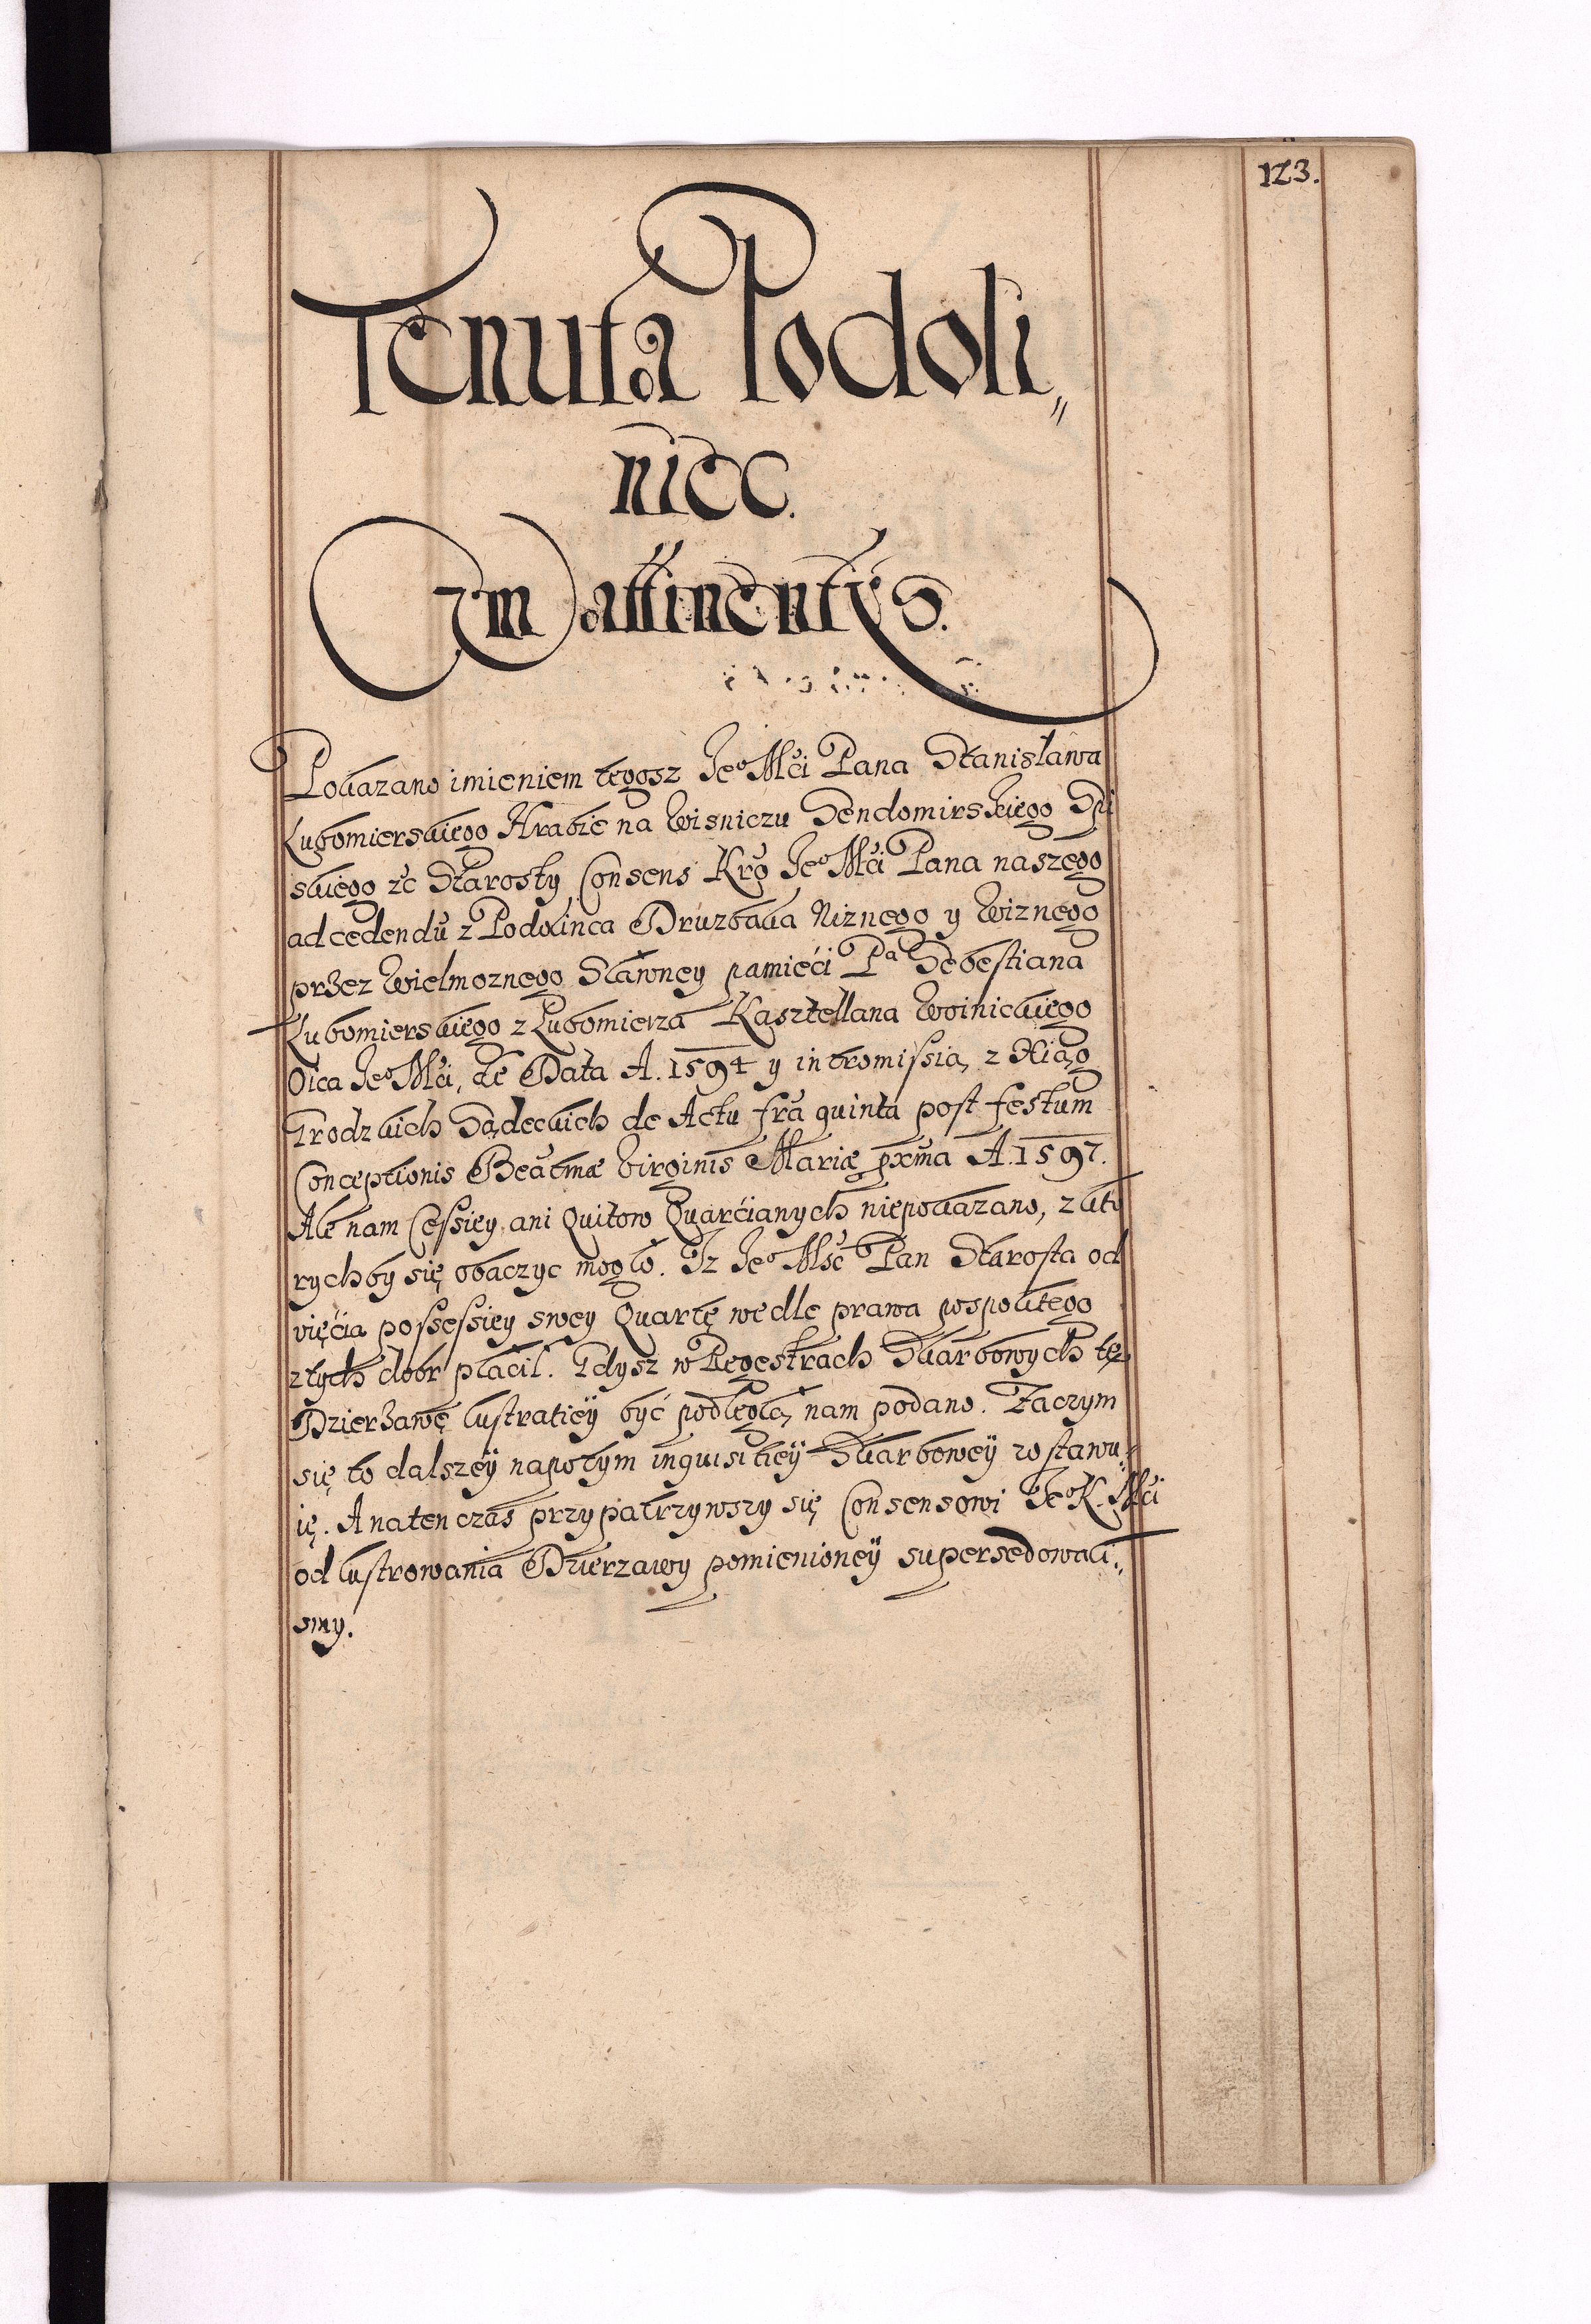 123.
Tenuta Podoli„
nicc.
Cum attinentÿs.
Pokazano imieniem tegosz Je° Mści Pana Stanisława
Lubomierskiego Hrabie na Wisniczu Sendomirskiego Spi
skiego etc Starosty Consens Kro Je° Mści Pana naszego
ad cedendũ z Podolinca Druzbaka Niznego y Wiznego
przez Wielmoznego Sławney pamięci Pª Sebestiana
Lubomierskiego z Lubomierza Kasztellana Woinickiego
Oica Je° Mści, de Data A. 1594 y intromissią, z Xiąg
Grodzkich Sądeckich de Actu fra quinta post festum
Conceptionis Beatmæ Virginis Mariæ pxma A. 1597.
Ale nam Cessiey ani Quitow Quarcianych niepokazano, z kto
rych by się obaczyc mogło. Jz Je° Mść Pan Starosta od
więcia possessiey swey Quartę wedle prawa pospolitego
z tych dobr płacił. Gdysz w Regestrach Skarbowych tę
Dzierzawę lustratieÿ być podległą nam podano. Zaczym
się to dalszeÿ napotym inquisitieÿ Skarboweÿ zostawu„
ię. A natenczas przypatrzywszy się Consensowi Je° K. Mści
od lustrowania Dzierzawy pomienioneÿ supersedowali„
smy.